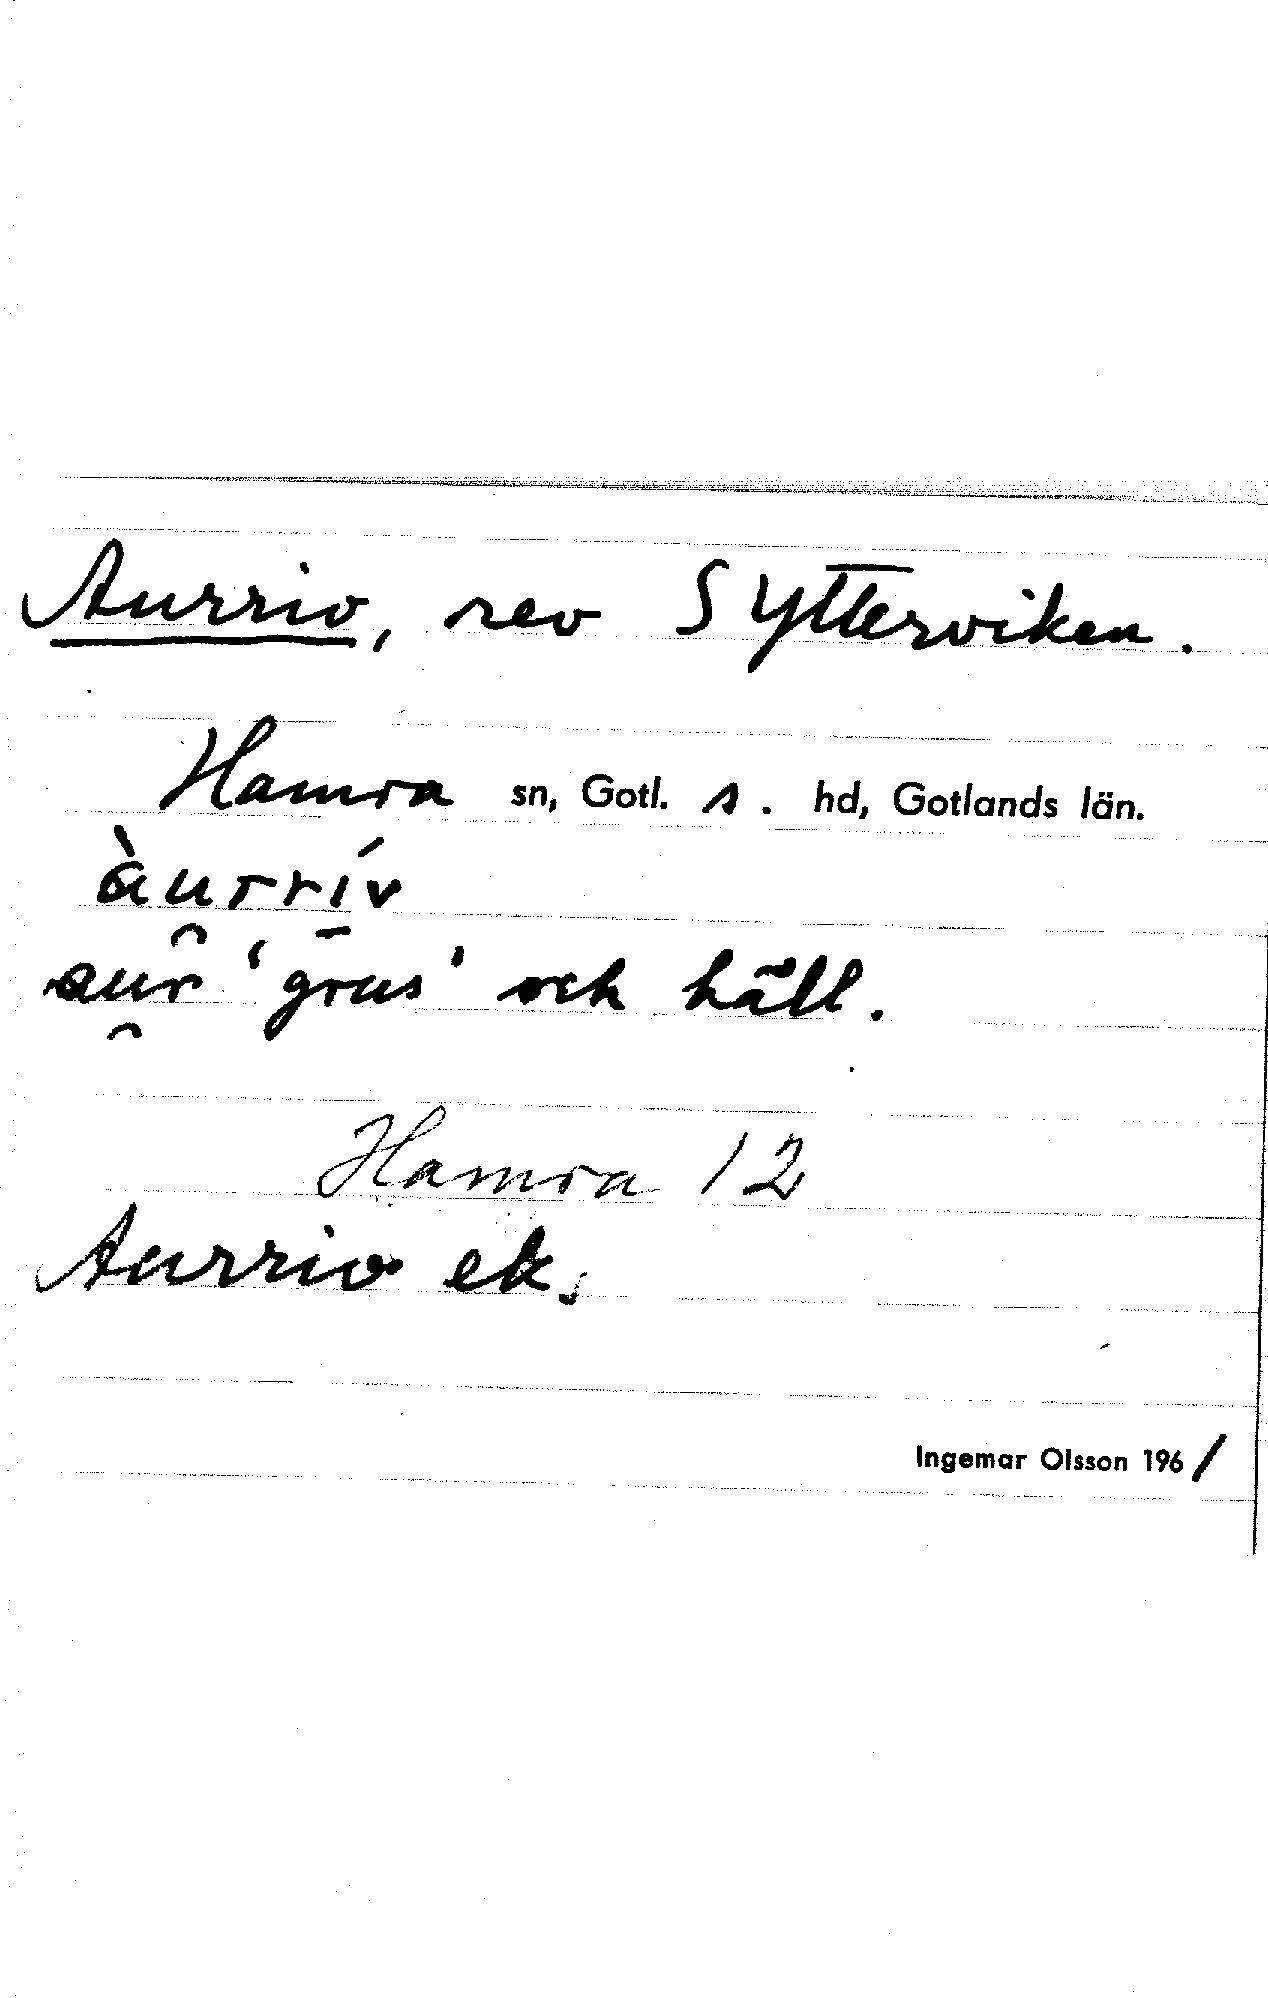 Aurriv, rev S Ytterviken.
Hamra sn, Gotl. s. hd, Gotlands län.
àu̯rrī́v
au̯r 'grus' och häll.
Hamra 12
Aurriv ek.
Ingemar Olsson 1961